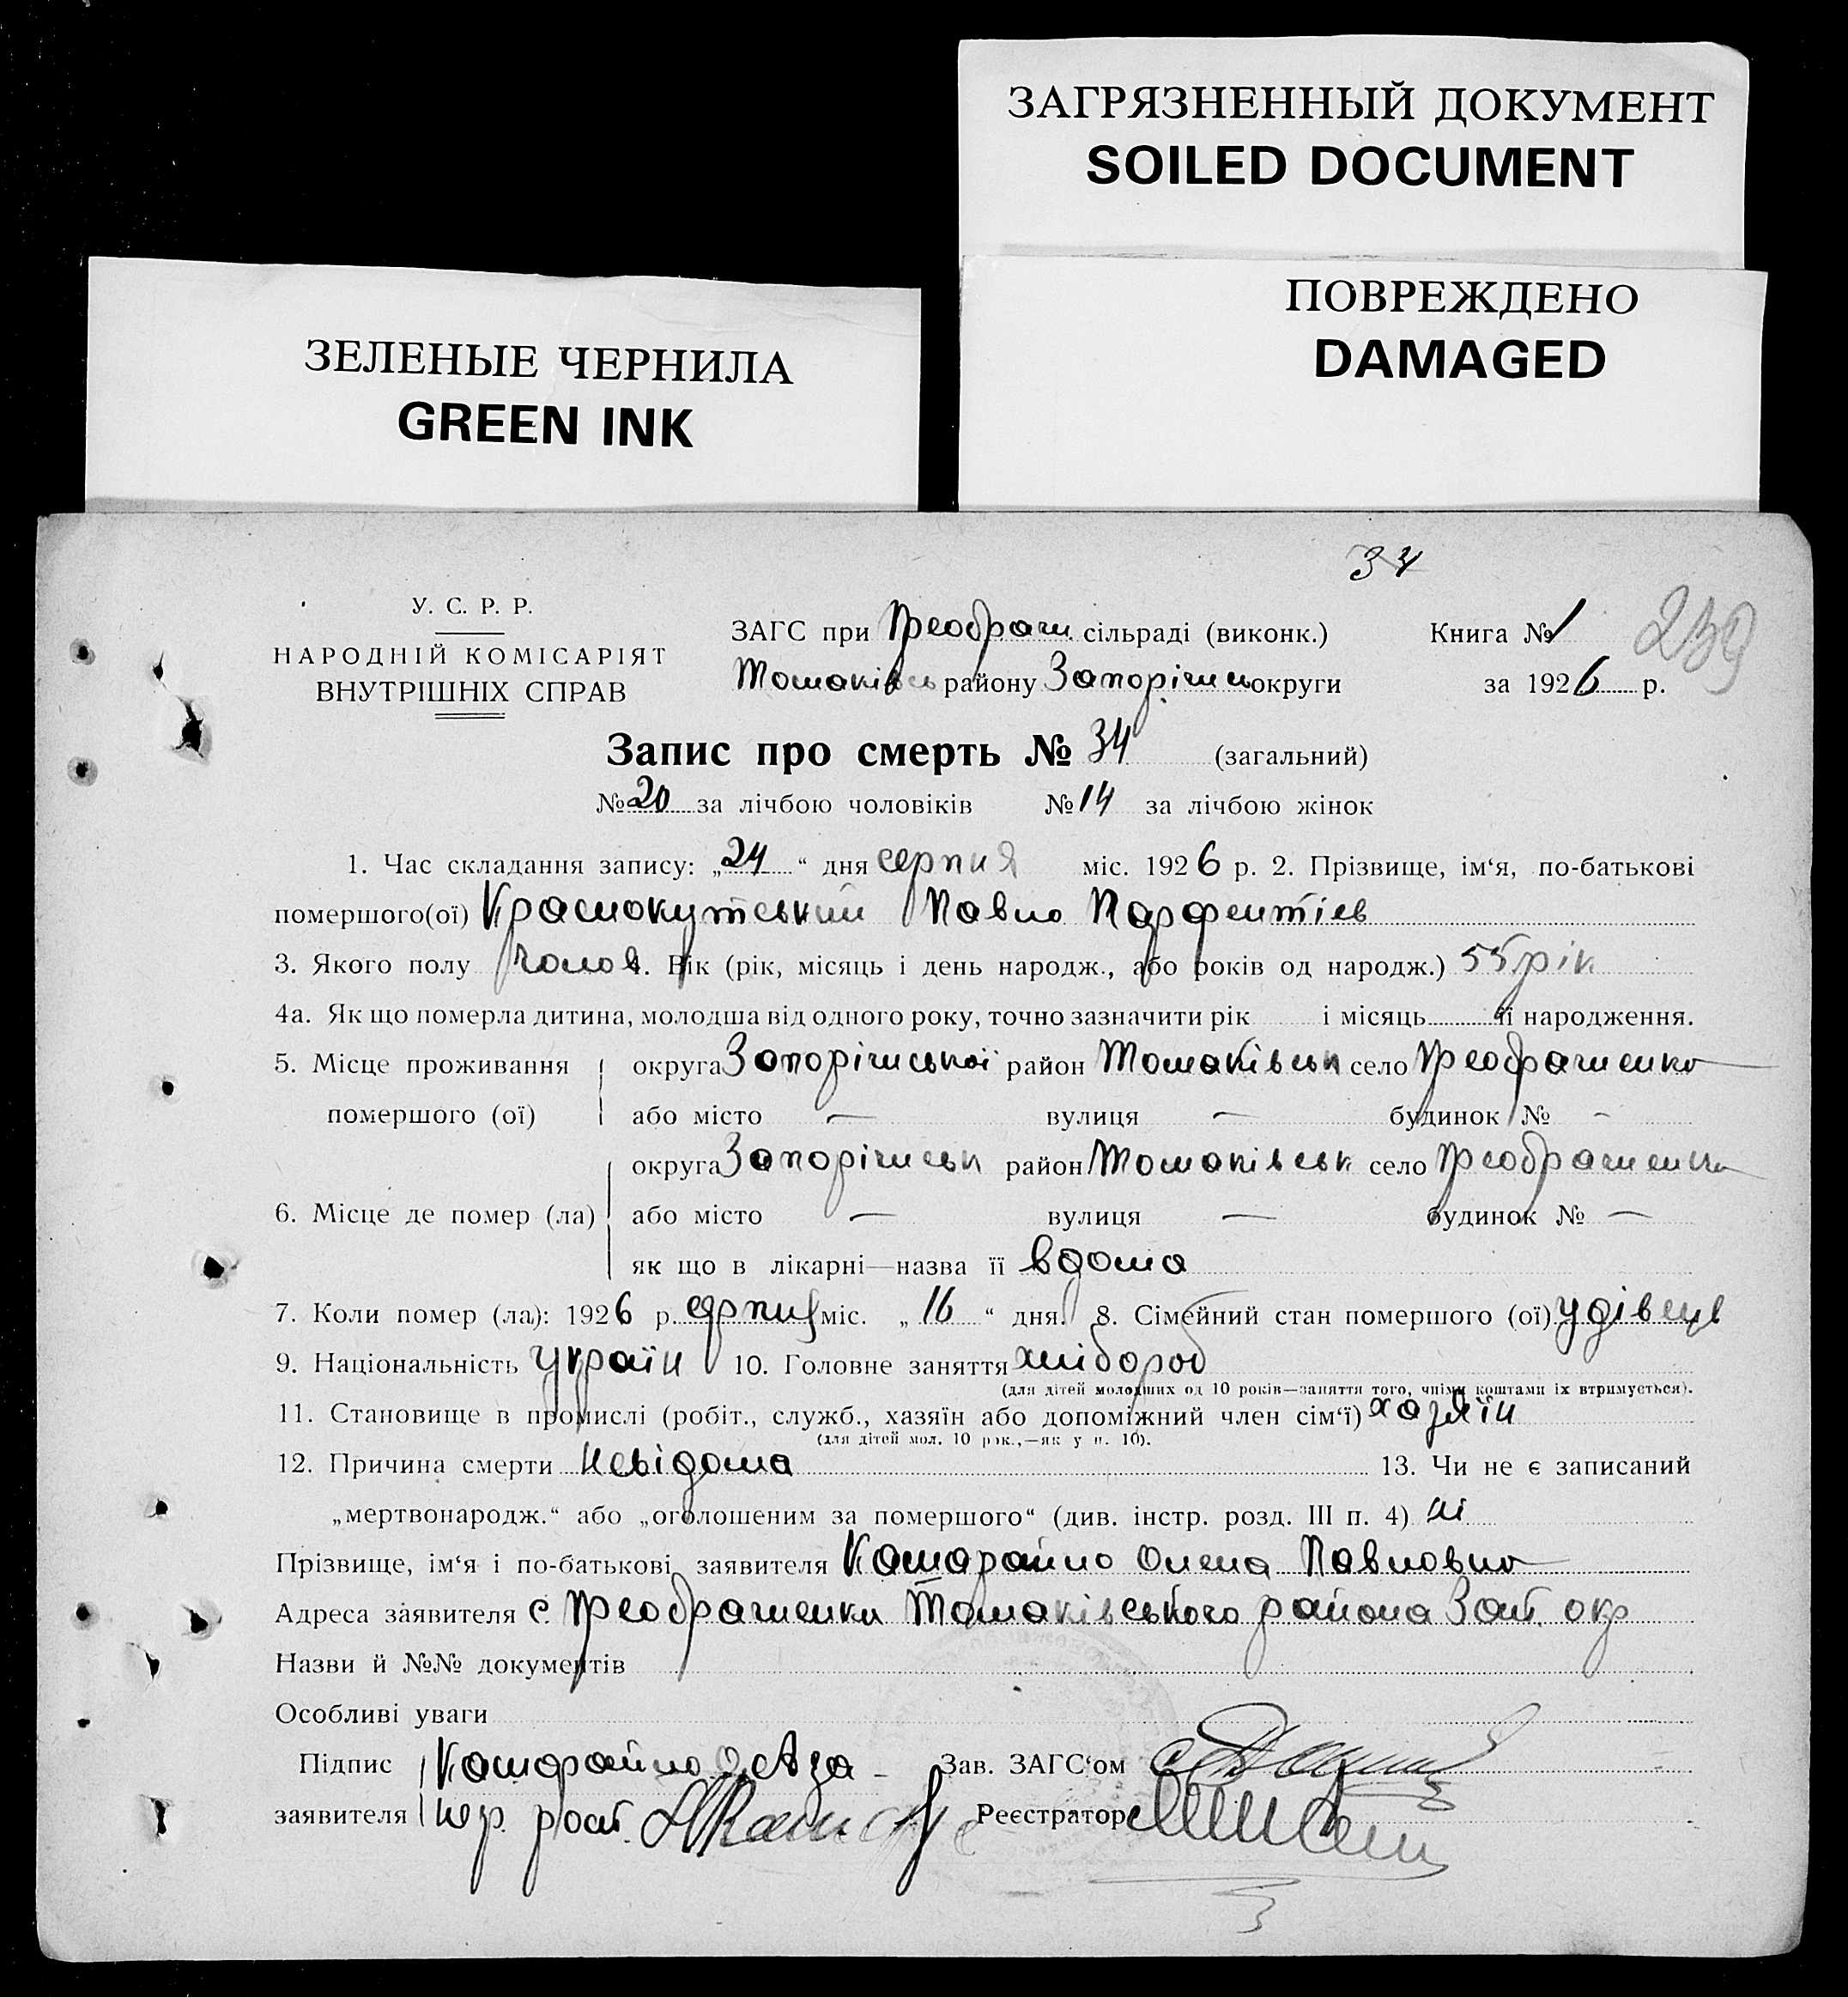 ЗАГРЯЗНЕННЫЙ ДОКУМЕНТ
SOILED DOCUMENT
ПОВРЕЖДЕНО
DAMAGED
ЗЕЛЕНЫЕ ЧЕРНИЛА
GREEN INK
34
239
У. С. Р. Р.
НАРОДНІЙ КОМІСАРІЯТ
ВНУТРІШНІХ СПРАВ
ЗАГС при Преображ. сільраді (виконк.) Книга № 1
Томаківсь району Запоріжськ округи за 1926 р.
Запис про смерть № 34 (загальний)
№ 20 за лічбою чоловіків № 14 за лічбою жінок
1. Час складання запису: „24“ дня серпня міс. 1926 р. 2. Прізвище, ім‘я, по-батькові
помершого(ої) Краснокутський Павло Парфентієв
3. Якого полу чолов. 4. Вік (рік, місяць і день народж., або років од народж.) 55 рік
4а. Як що померла дитина, молодша від одного року, точно зазначити рік і місяць її народження.
5. Місце проживання округа Запоріжської район Томаківськ село Преображенка
помершого (ої) або місто — вулиця — будинок № -
округа Запоріжськ район Томаківськ село Преображенка
6. Місце де помер (ла) або місто — вулиця — будинок № —
як що в лікарні—назва її вдома
7. Коли помер (ла): 1926 р. серпня міс. „16“ дня. 8. Сімейний стан помершого (ої) удівець
9. Національність україн 10. Головне заняття хлібороб
(для дітей молодших од 10 років—заняття того, чиїми коштами їх втримується).
11. Становище в промислі (робіт., служб., хазяїн або допоміжний член сім‘ї) хазяїн
(для дітей мол. 10 рок.,—як у п. 10).
12. Причина смерти невідома 13. Чи не є записаний
„мертвонародж.“ або „оголошеним за помершого“ (див. інстр. розд. III п. 4) ні
Прізвище, ім‘я і по-батькові заявителя Камарайло Олена Павловна
Адреса заявителя с. Преображенки Томаківського района Зап. окр
Назви й №№ документів
Особливі уваги
Підпис Камарайло О. А за Зав. ЗАГС‘ом
заявителя Реєстратор